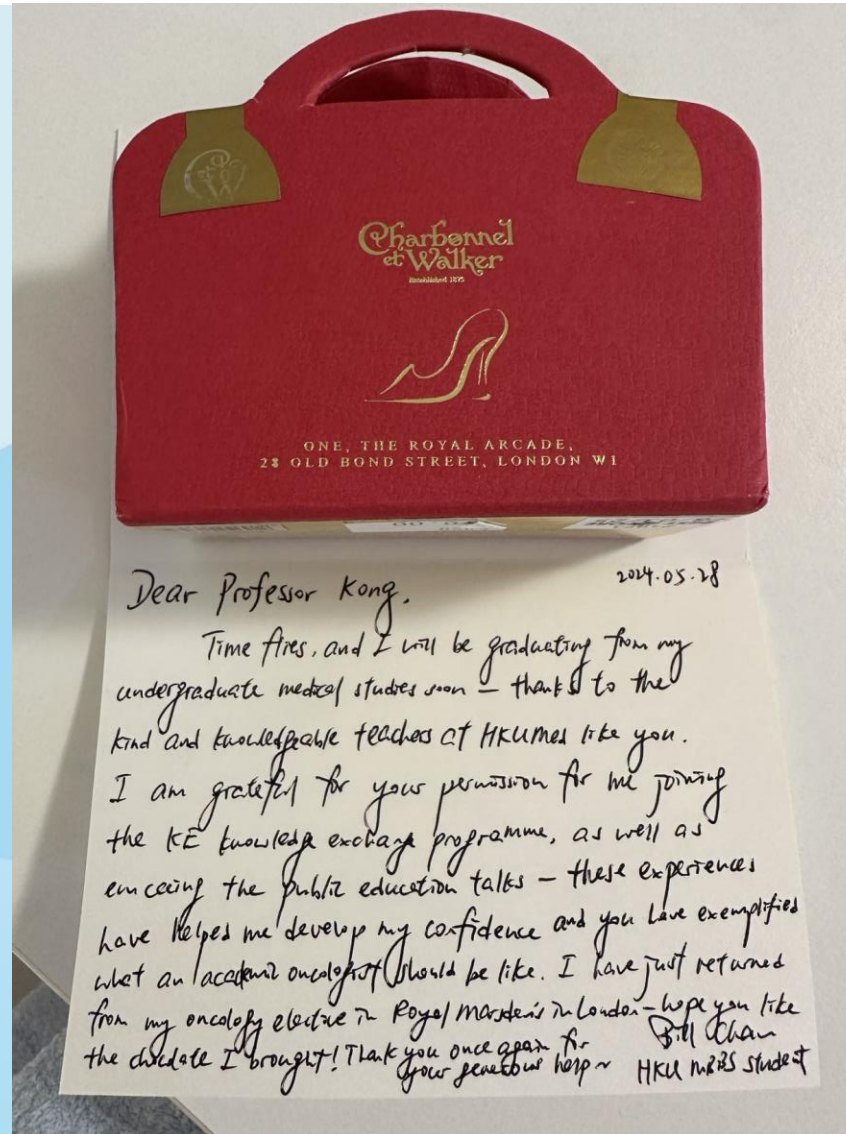 Charbonnel
et Walker
Established 1875
ONE, THE ROYAL ARCADE,
28 OLD BOND STREET, LONDON W1
2024.05.28
Dear Professor Kong,
Time flies, and I will be graduating from my
undergraduate medical studies soon – thanks to the
kind and knowledgeable teachers at HKUMed like you.
I am grateful for your permission for me joining
the KE knowledge exchange programme, as well as
emceeing the public education talks – these experiences
have helped me develop my confidence and you have exemplified
what an academic oncologist should be like. I have just returned
from my oncology elective in Royal Marsden's in London – hope you like
the chocolate I brought! Thank you once again for
your generous help ~
Bill Chan
HKU MBBS student